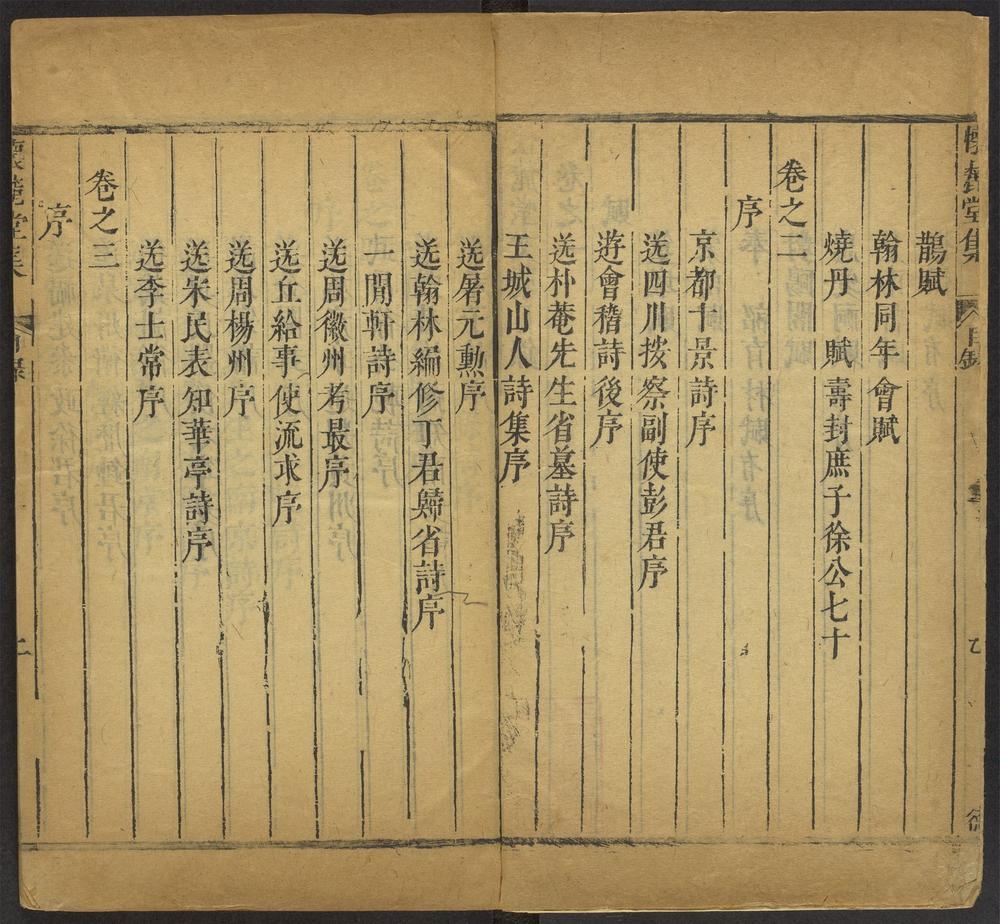 鵲賦
翰林同年會賦
燒丹賦壽封庶子徐公七十
卷之二
序
京都十景詩序
送四川按察副使彭君序
遊會稽詩後序
送朴菴先生省墓詩序
王城山人詩集序
送屠元勳序
送翰林編修丁君歸省詩序
閒軒詩序
送周徽州考最序
送丘給事使流求序
送周楊州序
送宋民表知華亭詩序
送李士常序
卷之三
序
懷麓堂集 目錄